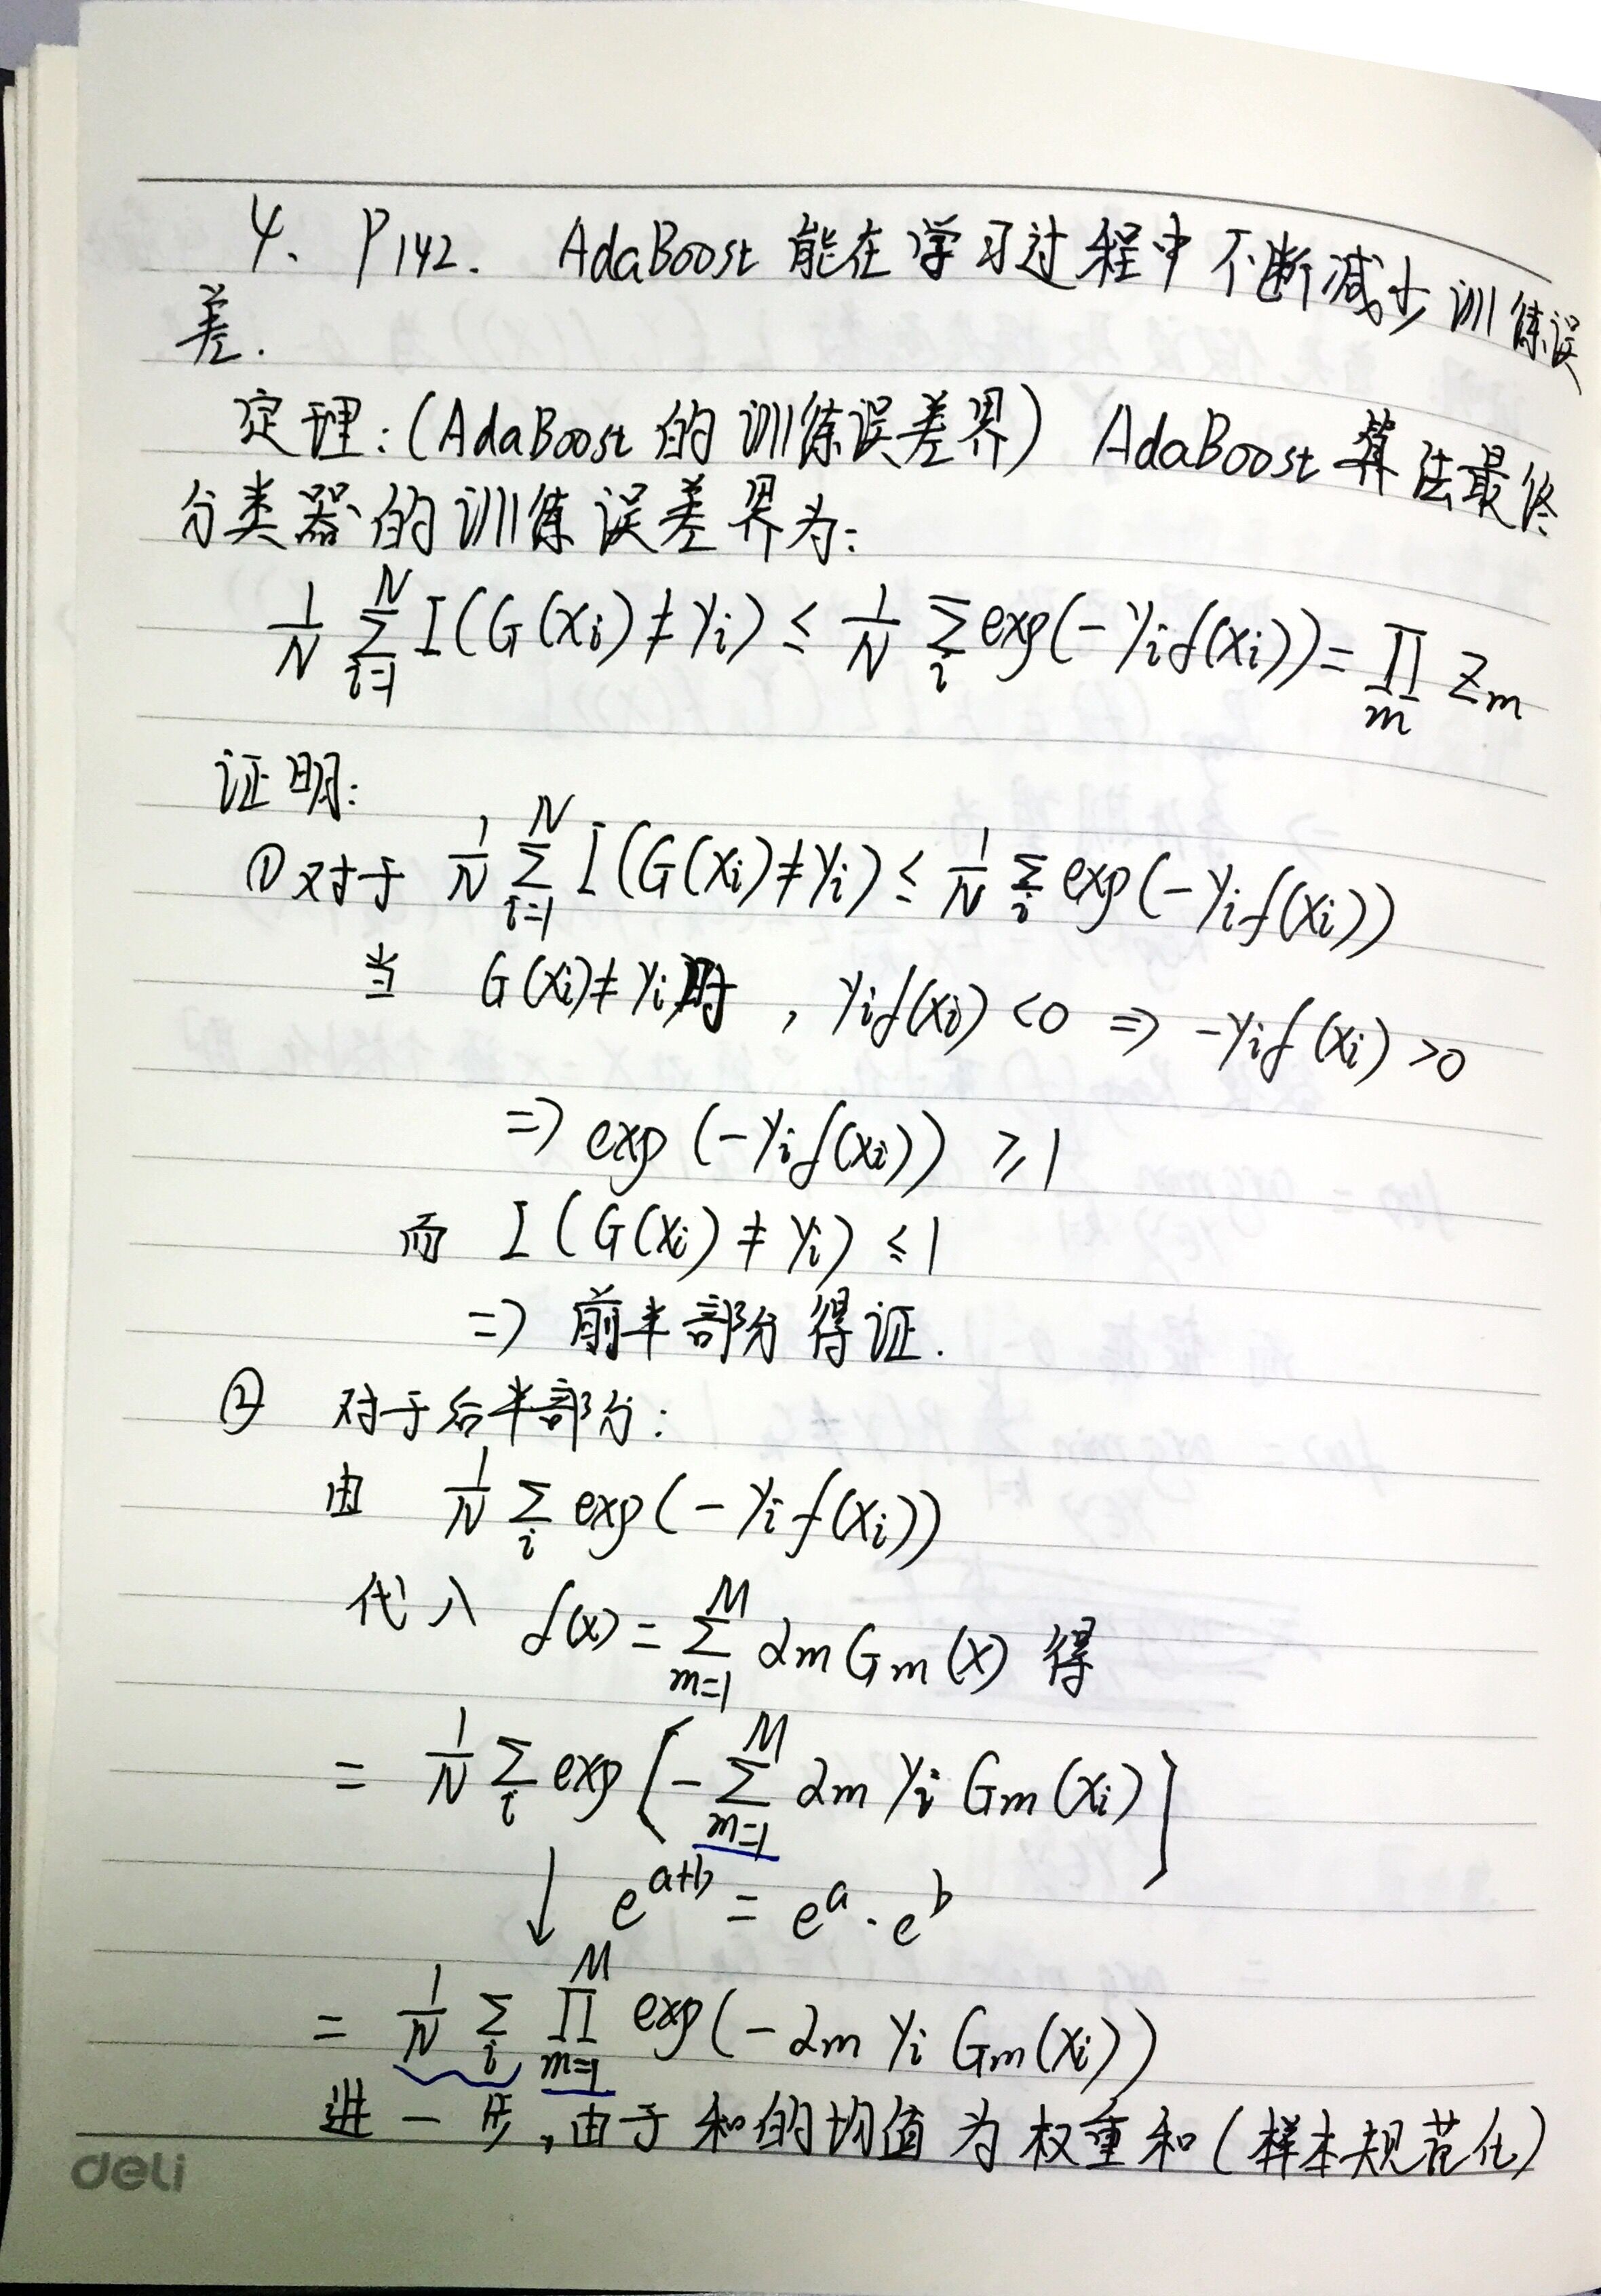 4、P142. AdaBoost能在学习过程中不断减少训练误
差.
定理:(AdaBoost的训练误差界) AdaBoost算法最终
分类器的训练误差界为:
1/N ∑_{i=1}^{N} I(G(xi)≠yi) ≤ 1/N ∑_i exp(-yif(xi)) = ∏_m Zm
证明:
①对于 1/N ∑_{i=1}^{N} I(G(xi)≠yi) ≤ 1/N ∑_i exp(-yif(xi))
当 G(xi)≠yi时, yif(xi)<0 ⇒ -yif(xi)>0
⇒ exp(-yif(xi)) ≥1
而 I(G(xi)≠yi) ≤1
⇒ 前半部分得证.
② 对于后半部分:
由 1/N ∑_i exp(-yif(xi))
代入 f(x)=∑_{m=1}^{M} αmGm(x) 得
= 1/N ∑_i exp[-∑_{m=1}^{M} αmyiGm(xi)]
↓ e^{a+b} = e^a·e^b
= 1/N ∑_i ∏_{m=1}^{M} exp(-αmyiGm(xi))
进一步,由于和的均值为权重和(样本规范化)
deli